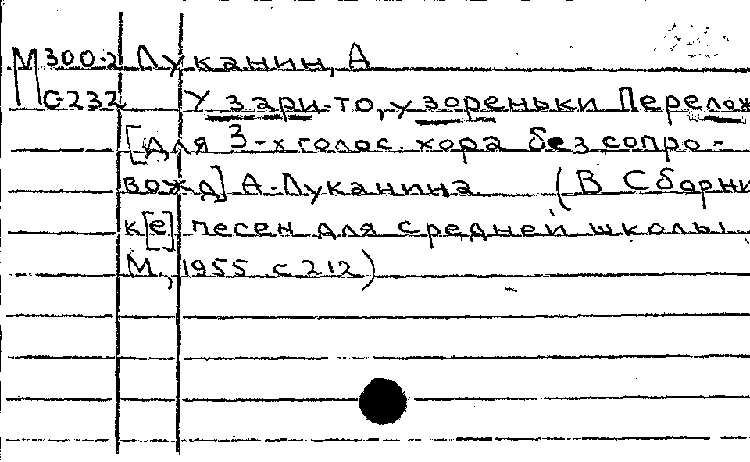 М 300-2 Луканин, А
С232 У зари-то, у зореньки Перелож
[для 3-х голос. хора без сопро-
вожд] А. Луканина (В Сборни
к[е] песен для средней школы
М., 1955 с 212)